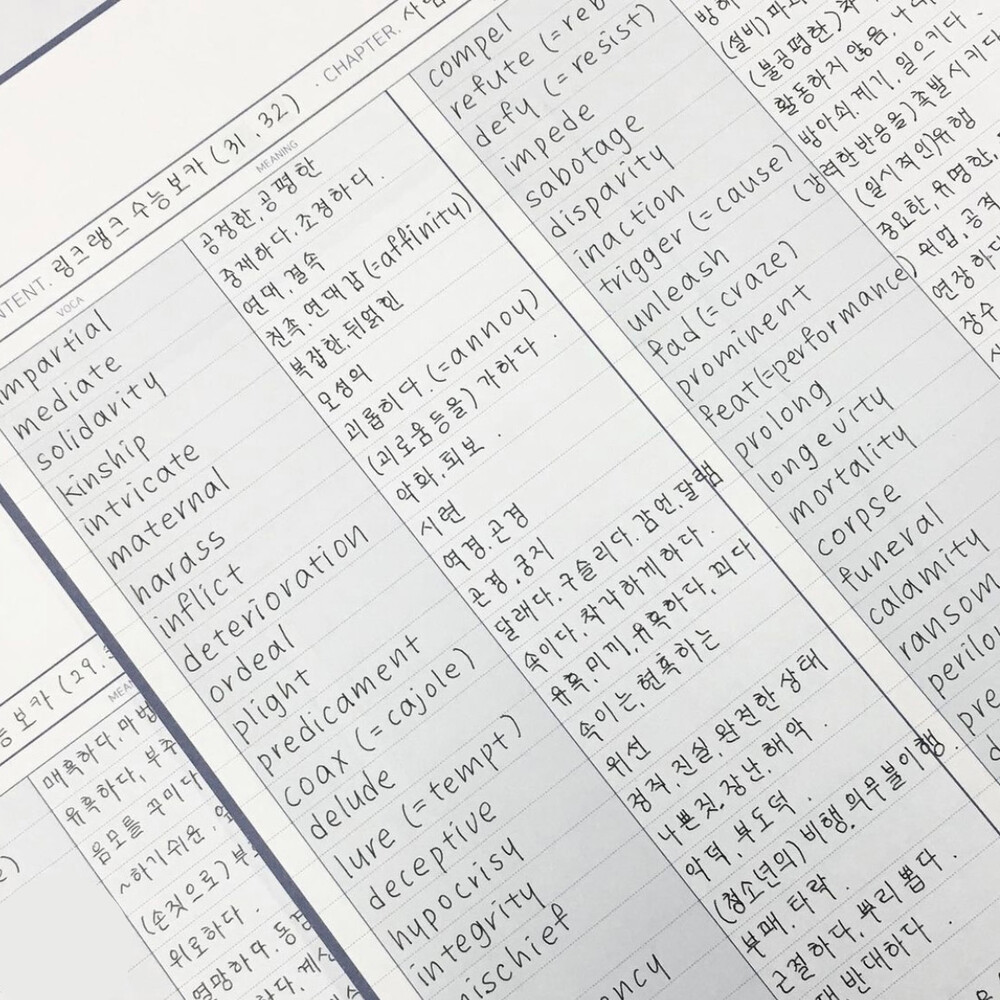 CHAPTER.
CONTENT. 링크랭크 수능보카 (31.32)
VOCA MEANING
impartial 공정한, 공평한
mediate 중재하다, 조정하다.
solidarity 연대, 결속
kinship 친족, 연대감 (=affinity)
intricate 복잡한, 뒤얽힌
maternal 모성의
harass 괴롭히다. (=annoy)
inflict (괴로움등을) 가하다.
deterioration 악화, 퇴보.
ordeal 시련
plight 역경, 곤경
predicament 곤경, 궁지
coax (=cajole) 달래다. 구슬리다. 감언, 달램
delude 속이다, 착각하게하다.
lure (=tempt) 유혹, 미끼, 유혹하다, 꾀다
deceptive 속이는, 현혹하는
hypocrisy 위선
integrity 정직, 진실, 완전한 상태
mischief 나쁜짓, 장난, 해악.
악덕, 부도덕.
(청소년의) 비행, 의무불이행.
부패, 타락.
근절하다, 뿌리 뽑다.
반대하다.
compel
refute
defy (=resist)
impede
sabotage (설비)
disparity (불공평한)
inaction 활동하지 않음,
trigger (=cause) 방아쇠, 계기, 일으키다.
unleash (강력한반응을) 촉발시키다
fad (=craze) (일시적인)유행
prominent 중요한, 유명한,
feat (=performance) 위업, 공적
prolong 연장하다
longevity 장수
mortality
corpse
funeral
calamity
ransom
보카 (29.
매혹하다, 마법
유혹하다, 부추
음모를 꾸미다
~하기쉬운,
(손짓으로)
위로하다.
열망하다.